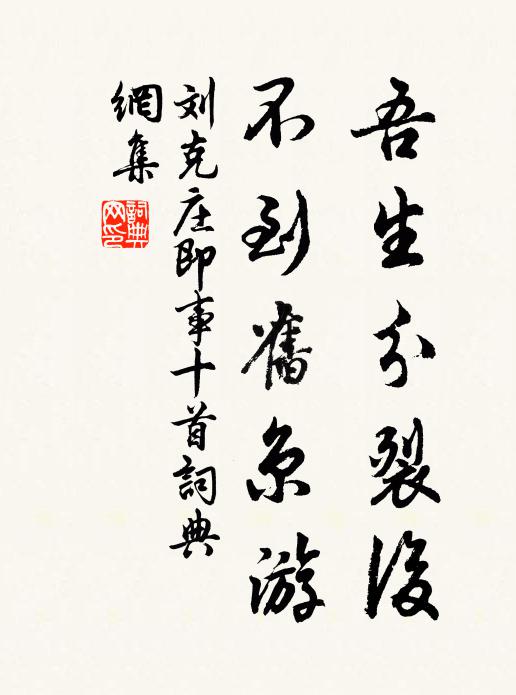 吾生分裂後
不到舊京游
刘克庄即事十首詞典
網集
詞典
网印